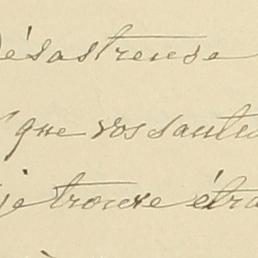 désastreuse
que vos santés
je trouve étra